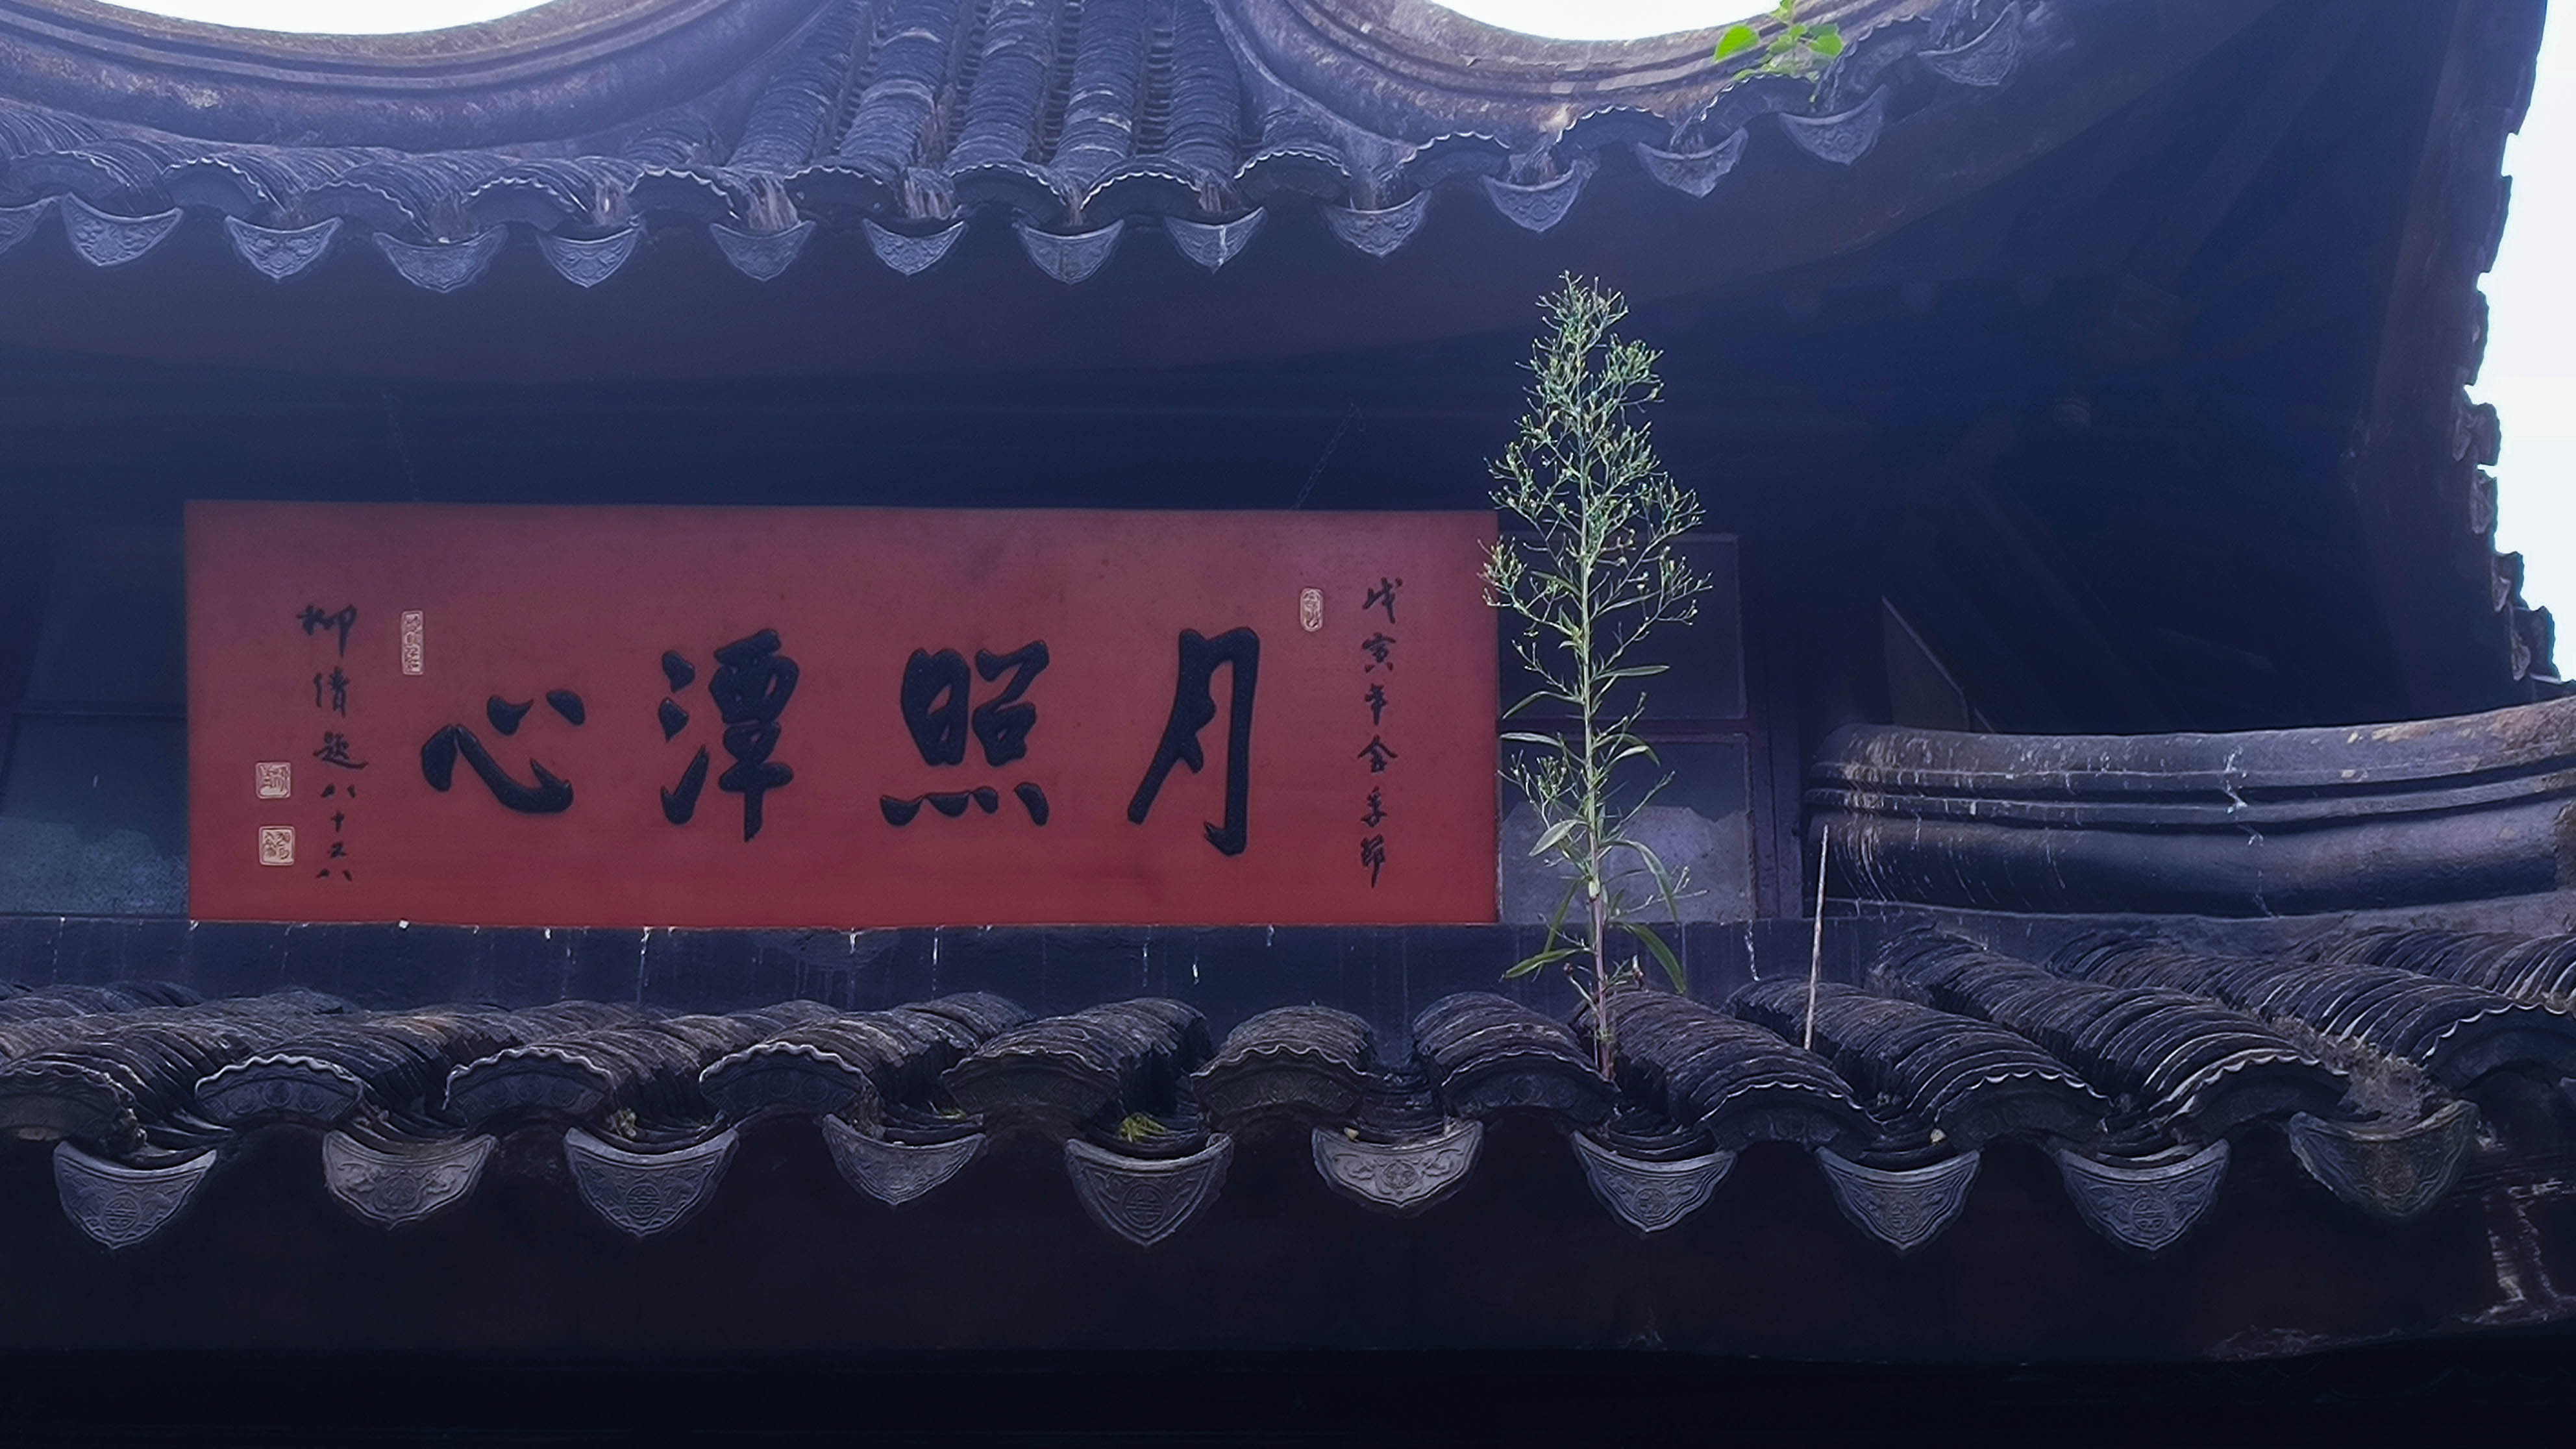 戊寅年金季節
月照潭心
柳倩題八十又八